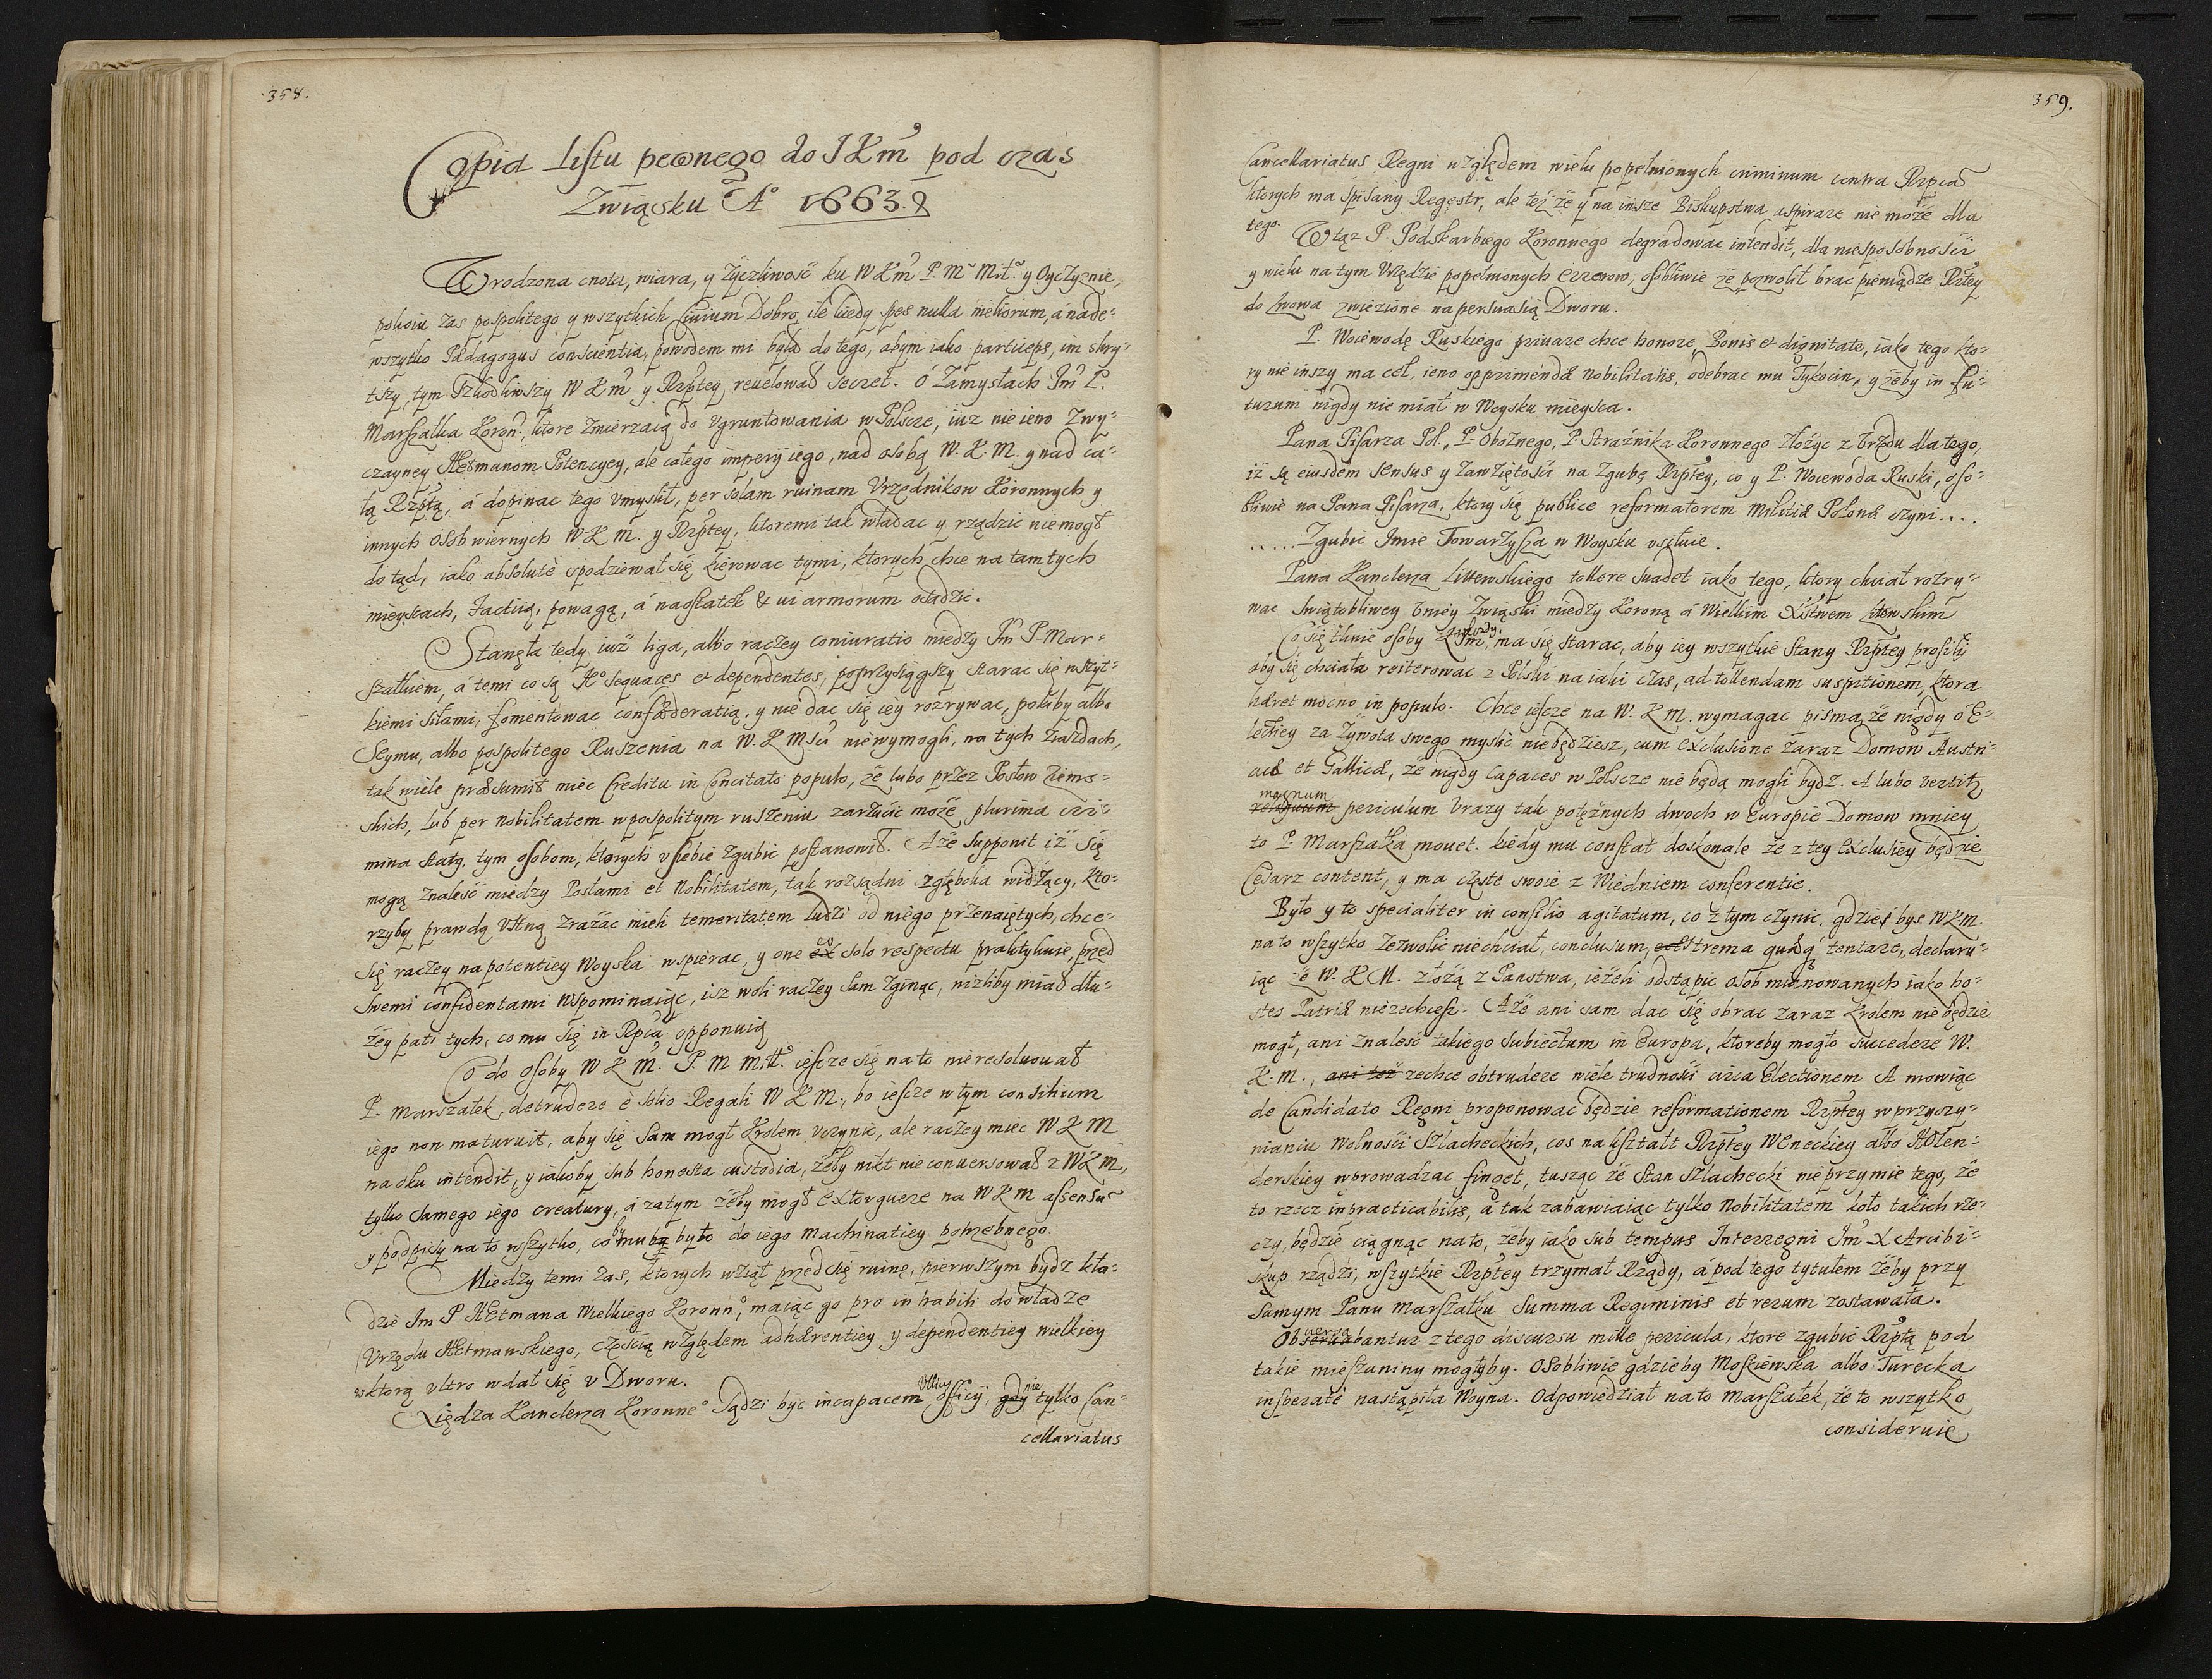 358.
Copia listu pewnego do JKm͛ pod czas
Związku Aº 1663.
Wrodzona cnota, wiara, y życzliwość ku W Km͛ P. Mº Mił.º y Oyczyznie,
pokoiu zas pospolitego y wszytkich Ciuium Dobro, ile kiedy spes nulla meliorum, á nade-
wszytko Pædagogus conscientia, powodem mi była do tego, abym iako particeps, im skry-
tszy, tym szkodliwszy W Km͛ y Rzptey reuelował secret. ó Zamysłach Jm͛ P.
Marszałka Koron., ktore zmierzaią do vgruntowania w Polscze, iuż nie ieno zwy-
czayney Hetmanom Potencyey, ale całego imperij iego, nad osobą W. K. M. y nad ca-
łą Rzptą, á dopinac tego vmyslił, per solam ruinam Vrzędnikow Koronnych, y
innych osob wiernych W K M. y Rzptey, ktoremi tak władac y rządzic nie mogł
do tąd, iako absolutè spodziewał się kierowac tymi, ktorych chce na tamtych
mieyscach, factią, powagą, á naostatek & ui armorum osadzic.
Stanęła tedy iuż liga, albo raczey coniuratio miedzy Jm͛ P. Mar-
szałkiem, á temi co są Aº sequaces et dependentes, poprzysiągszy starac się wszyt-
kiemi siłami, fomentowac confæderatią, y nie dac się iey rozrywac, pokiby albo
Seymu, albo pospolitego Ruszenia na W. K Msci niewymogli, na tych ziazdach,
tak wiele præsumit miec Creditu in Concitato populo, że lubo przez Posłow ziems-
skich, lub per nobilitatem w pospolitym ruszeniu zarzucic może plurima cri-
mina statq. tym osobom, ktorych v siebie zgubic postanowił. A że supponit iż się
mogą znaleść miedzy Posłami et nobilitatem, tak rozsądni zgłęboka widzący, kto-
rzyby prawdą vstną zrażac mieli temeritatem ludzi od niego przenaiętych, chce-
się raczey na potentiey Woyska wspierac, y one ex eo solo respectu praktykuie, przed
swemi confidentami wspominaiąc, isz woli raczey sam zginąc, niżliby miał dłu-
żey pati tych, co mu się in Rpca opponuią
Co do osoby W K M͛. P. M Mił. ieszcze się na to nieresoluował
P. Marszałek, detrudere è solio Regali W K M., bo ieszcze w tym consilium
iego non maturuit, aby się sam mogł Krolem vczynic, ale raczey miec W K M
nadku intendit, y iakoby sub honesta custodia, żeby nikt nie conuersował z WKM,
tylko samego iego creatury, á zatym żeby mogł extorquere na W K M assensu
y podpisy na to wszytko, co by mu by było do iego machinatiey potrzebnego.
Miedzy temi zas, ktorych wziął przed się ruinę, pierwszym bydz kła-
dzie Jm P Hetmana Wielkiego Koronnº, maiąc go pro inhabili do władze
Vrzędu Hetmanskiego, częścią względem adhærentiey y dependentiey wielkiey
wktorą vltro wdał się v Dworu.
Xiędza Kanclerza Koronneº sądzi byc incapacem vllius officij, gdy nie tylko Can-
cellariatus
359.
Cancellariatus Regni względem wielu popełnionych criminum contra Rzpcã
ktorych ma spisany Regestr, ale też że y na insze Biskupstwa aspirare nie może dla
tego.
Wtąz P. Podskarbiego Koronnego degradowac intendit, dla niesposobnosci
y wielu na tym Vrzędzie popełnionych Errorow, osobliwie że pozwolił brac pieniądze Rzptey
do Lwowa zwiezione na persuasią Dworu.
P. Woiewodę Ruskiego priuare chce honore, Bonis et dignitate, iako tego kto-
ry nie inszy ma cel, ieno opprimendæ nobilitatis, odebrac mu Tykocin, y żeby in fu-
turum nigdy nie miał w Woysku mieysca.
Pana Pisarza Pol., P. Oboznego, P. Strażnika Koronnego złożyc z vrzędu dla tego,
iż są eiusdem sensus y zawziętości na zgubę Rzptey, co y P. Woiewoda Ruski, oso-
bliwie na Pana Pisarza, ktory się publice reformatorem militiæ Polonæ czyni....
.....Zgubic Jmie Towarzysza w Woysku vsiłuie.
Pana Kanclerza Littewskiego tollere suadet iako tego, ktory chciał rozry-
wac swiątobliwey vniey Związki miedzy Koroną á Wielkim Xstwem Litewskim
Co się tknie osoby Krolowy Jm͛, ma się starac, aby iey wszytkie Stany Rzptey prosiły
aby się chciała reiterowac z Polski na iaki czas, ad tollendam suspitionem, ktora
hæret mocno in populo. Chce iescze na W. K M. wymagac pisma, że nigdy ó E-
lectiey za żywota swego myslic niebędziesz, cum exclusione zaraz Domow Austri-
acæ et Gallicæ, że nigdy capaces w Polscze nie będą mogli bydz. A lubo vertitr
magnum
reliquum periculum vrazy tak potężnych dwoch w Europie Domow mniey
to P. Marszałka mouet. kiedy mu constat doskonale że z tey exclusiey będzie
Cesarz content, y ma częste swoie z Wiedniem conferentie.
Było y to specialiter in consilio agitatum, co z tym czynic, gdzieś bys WKM.
na to wszytko zezwolic niechciał, conclusum, extrema quæq tentare, declaru-
iąc że W. K M. złożą z Panstwa, ieżeli odstąpic osob mianowanych iako ho-
stes Patriæ niezechcesz. A że ani sam dac się obrac zaraz Krolem nie będzie
mogł, ani znaleść takiego subiectum in Europa, ktoreby mogło succedere W.
K. M., ani też zechce obtrudere wiele trudności circa Electionem A mowiąc
de Candidato Regni proponowac będzie reformationem Rzptey w przyczy-
nianiu wolnosci Szlacheckich, cos na kształt Rzptey Weneckiey albo Holen-
derskiey wprowadzac finget, tusząc że stan szlachecki nie przymie tego, że
to rzecz inpracticabilis, á tak zabawiaiąc tylko nobilitatem koło takich rze-
czy, będzie ciągnąc na to, żeby iako sub tempus Interregni Jm͛ X Arcibi-
skup rządzi, wszytkie Rzptey trzymał Rządy, á pod tego tytułem żeby przy
samym Panu Marszałku summa Regiminis et rerum zostawała.
Obseruabantur z tego discursu mille pericula, ktore zgubic Rzptą pod
takie mieszaniny mogłyby. Osobliwie gdzieby Moskiewska albo Turecka
insperatè nastąpiła Woyna. Odpowiedział na to Marszałek, że to wszytko
consideruie